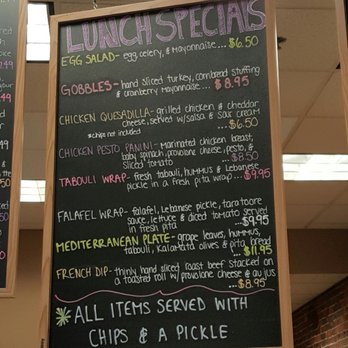 LUNCH SPECIALS
EGG SALAD- egg, celery, & mayonnaise... $6.50
GOBBLES- hand sliced turkey, cornbread stuffing
& cranberry mayonnaise... $8.95
CHICKEN QUESADILLA- grilled chicken & cheddar
cheese, served w/salsa & sour cream
*chips not included ...$6.50
CHICKEN PESTO PANINI- Marinated chicken breast,
baby spinach, provolone cheese, pesto, &
sliced tomato ...$8.50
TABOULI WRAP- fresh tabouli, hummus & Lebanese
pickle in a fresh pita wrap... $9.95
FALAFEL WRAP- falafel, Lebanese pickle, taratoore
sauce, lettuce & diced tomato served
in fresh pita ...$9.95
MEDITERRANEAN PLATE- grape leaves, hummus,
tabouli, Kalamata olives & pita bread
...$11.95
FRENCH DIP- thinly hand sliced roast beef stacked on
a toasted roll w/provolone cheese & au jus
...$8.95
*ALL ITEMS SERVED WITH
CHIPS & A PICKLE